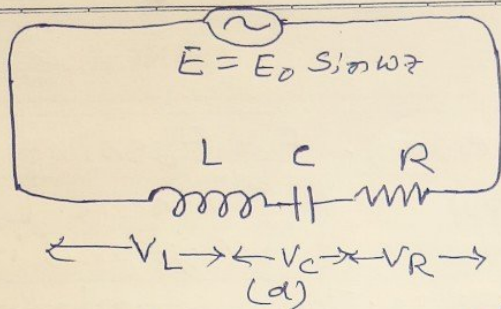 E = E₀ Sin ωt
L C R
V_L V_C V_R
(a)